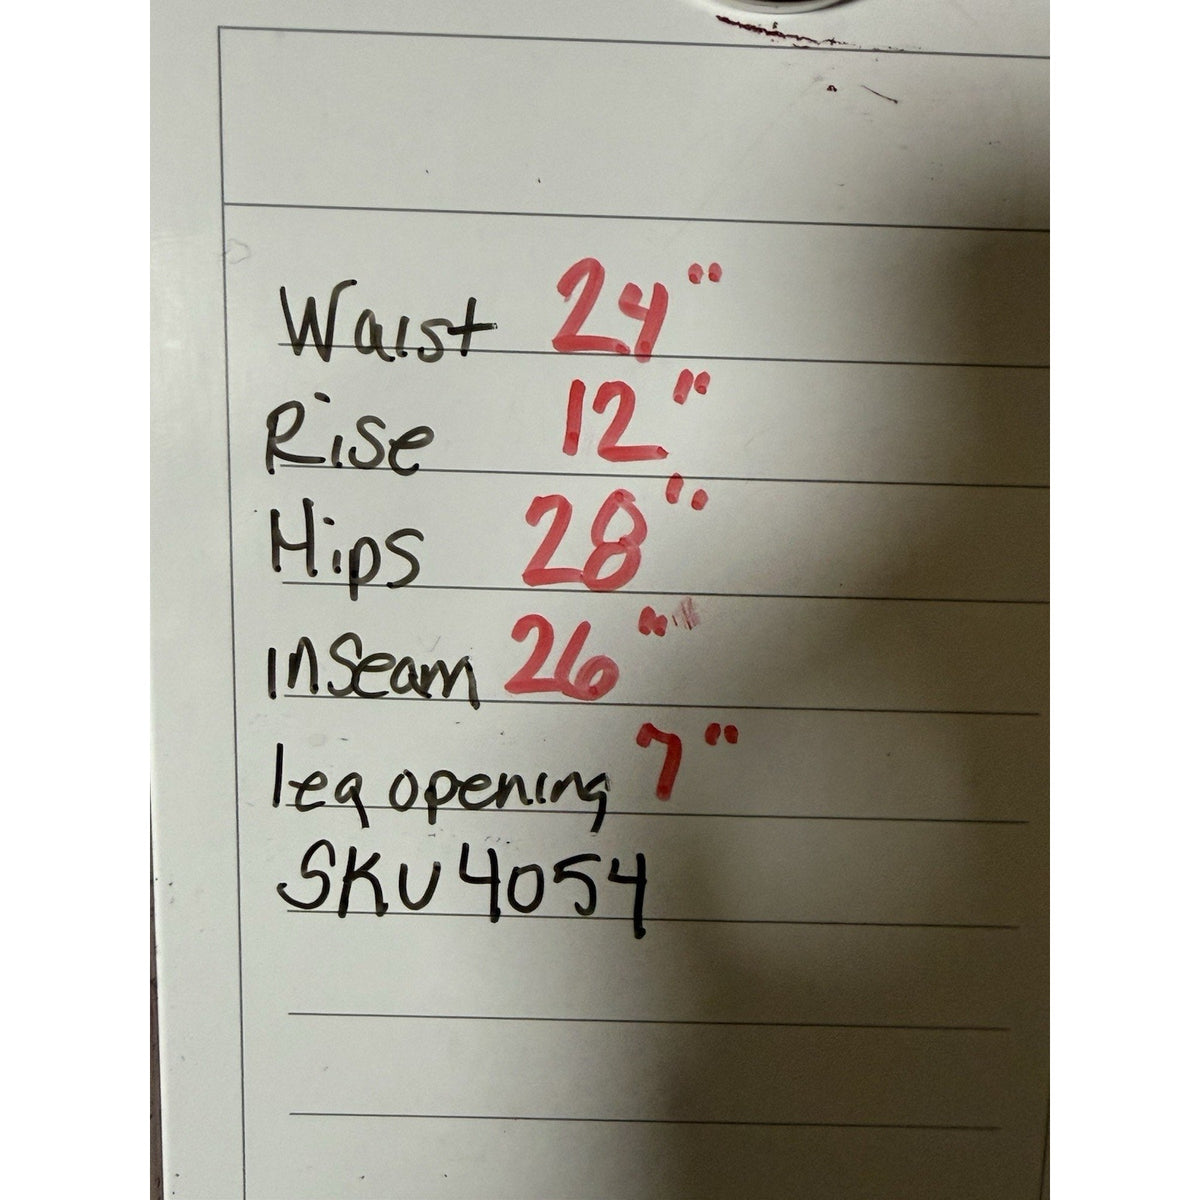 Waist 24"
Rise 12"
Hips 28"
inseam 26"
leg opening 7"
SKU 4054